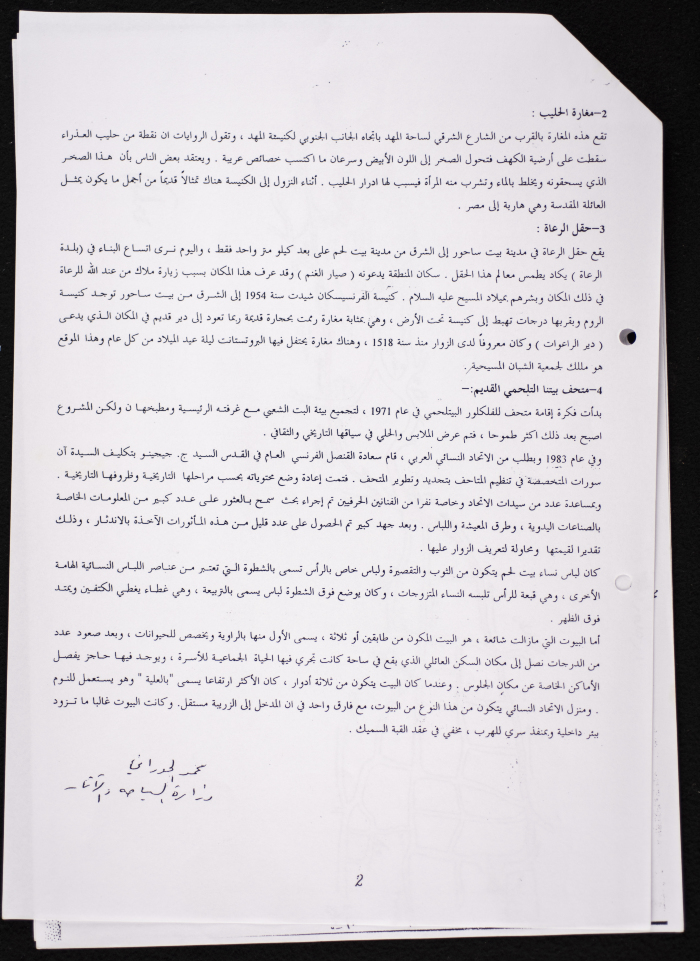 2-مغارة الحليب :
تقع هذه المغارة بالقرب من الشارع الشرقي لساحة المهد باتجاه الجانب الجنوبي لكنيسة المهد ، وتقول الروايات ان نقطة من حليب العذراء
سقطت على أرضية الكهف فتحول الصخر إلى اللون الأبيض وسرعان ما اكتسب خصائص عريبة . ويعتقد بعض الناس بأن هذا الصخر
الذي يسحقونه ويخلط بالماء وتشرب منه المرأة فيسبب لها ادرار الحليب . أثناء النزول إلى الكنيسة هناك تمثالاً قديماً من أجمل ما يكون يمثل
العائلة المقدسة وهي هاربة إلى مصر .
3-حقل الرعاة :
يقع حقل الرعاة في مدينة بيت ساحور إلى الشرق من مدينة بيت لحم على بعد كيلو متر واحد فقط ، واليوم نرى اتساع البناء في (بلدة
الرعاة ) يكاد يطمس معالم هذا الحقل . سكان المنطقة يدعونه ( صيار الغنم ) وقد عرف هذا المكان بسبب زيارة ملاك من عند الله للرعاة
في ذلك المكان وبشرهم بميلاد المسيح عليه السلام . كنيسة الفرنسيسكان شيدت سنة 1954 إلى الشرق من بيت ساحور توجد كنيسة
الروم وبقربها درجات تهبط إلى كنيسة تحت الأرض ، وهي بمثابة مغارة رممت بحجارة قديمة ربما تعود إلى دير قديم في المكان الذي يدعى
( دير الراعوات ) وكان معروفاً لدى الزوار منذ سنة 1518 ، وهناك مغارة يحتفل فيها البروتستانت ليلة عيد الميلاد من كل عام وهذا الموقع
هو مللك لجمعية الشبان المسيحية.
4-متحف بيتنا التلحمي القديم:-
بدأت فكرة إقامة متحف للفلكلور البيتلحمي في عام 1971 ، لتجميع بيئة البت الشعبي مع غرفته الرئيسية ومطبخها ن ولكن المشروع
اصبح بعد ذلك اكثر طموحا ، فتم عرض الملابس والحلي في سياقها التاريخي والثقافي .
وفي عام 1983 وبطلب من الاتحاد النسائي العربي ، قام سعادة القنصل الفرنسي العام في القدس السيد ج. جيحينو بتكليف السيدة آن
سورات المتخصصة في تنظيم المتاحف بتجديد وتطوير المتحف . فتمت إعادة وضع محتوياته بحسب مراحلها التاريخية وظروفها التاريخية .
وبمساعدة عدد من سيدات الاتحاد وخاصة نفرا من الفنانين الحرفيين تم إجراء بحث سمح بالعثور على عدد كبير من المعلومات الخاصة
بالصناعات اليدوية ، وطرق المعيشة واللباس . وبعد جهد كبير تم الحصول على عدد قليل من هذه المأثورات الآخذة بالاندثار ، وذلك
تقديرا لقيمتها ومحاولة لتعريف الزوار عليها .
كان لباس نساء بيت لحم يتكون من الثوب والتقصيرة ولباس خاص بالرأس تسمى بالشطوة التي تعتبر من عناصر اللباس النسائية الهامة
الأخرى ، وهي قبعة للرأس تلبسه النساء المتزوجات ، وكان يوضع فوق الشطوة لباس يسمى بالتربيعة ، وهي غطاء يغطي الكتفين ويمتد
فوق الظهر .
أما البيوت التي مازالت شائعة ، هو البيت المكون من طابقين أو ثلاثة ، يسمى الأول منها بالراوية ويخصص للحيوانات ، وبعد صعود عدد
من الدرجات نصل إلى مكان السكن العائلي الذي يقع في ساحة كانت تجري فيها الحياة الجماعية للأسرة ، ويوجد فيها حاجز يفصل
الأماكن الخاصة عن مكان الجلوس . وعندما كان البيت يتكون من ثلاثة أدوار ، كان الأكثر ارتفاعا يسمى "بالعلية " وهو يستعمل للنوم
. ومنزل الاتحاد النسائي يتكون من هذا النوع من البيوت، مع فارق واحد في ان المدخل إلى الزريبة مستقل. وكانت البيوت غالبا ما تزود
ببئر داخلية وبمنفذ سري للهرب ، مخفي في عقد القبة السميك .
محمد الحوراني
وزارة السياحه والآثار
2